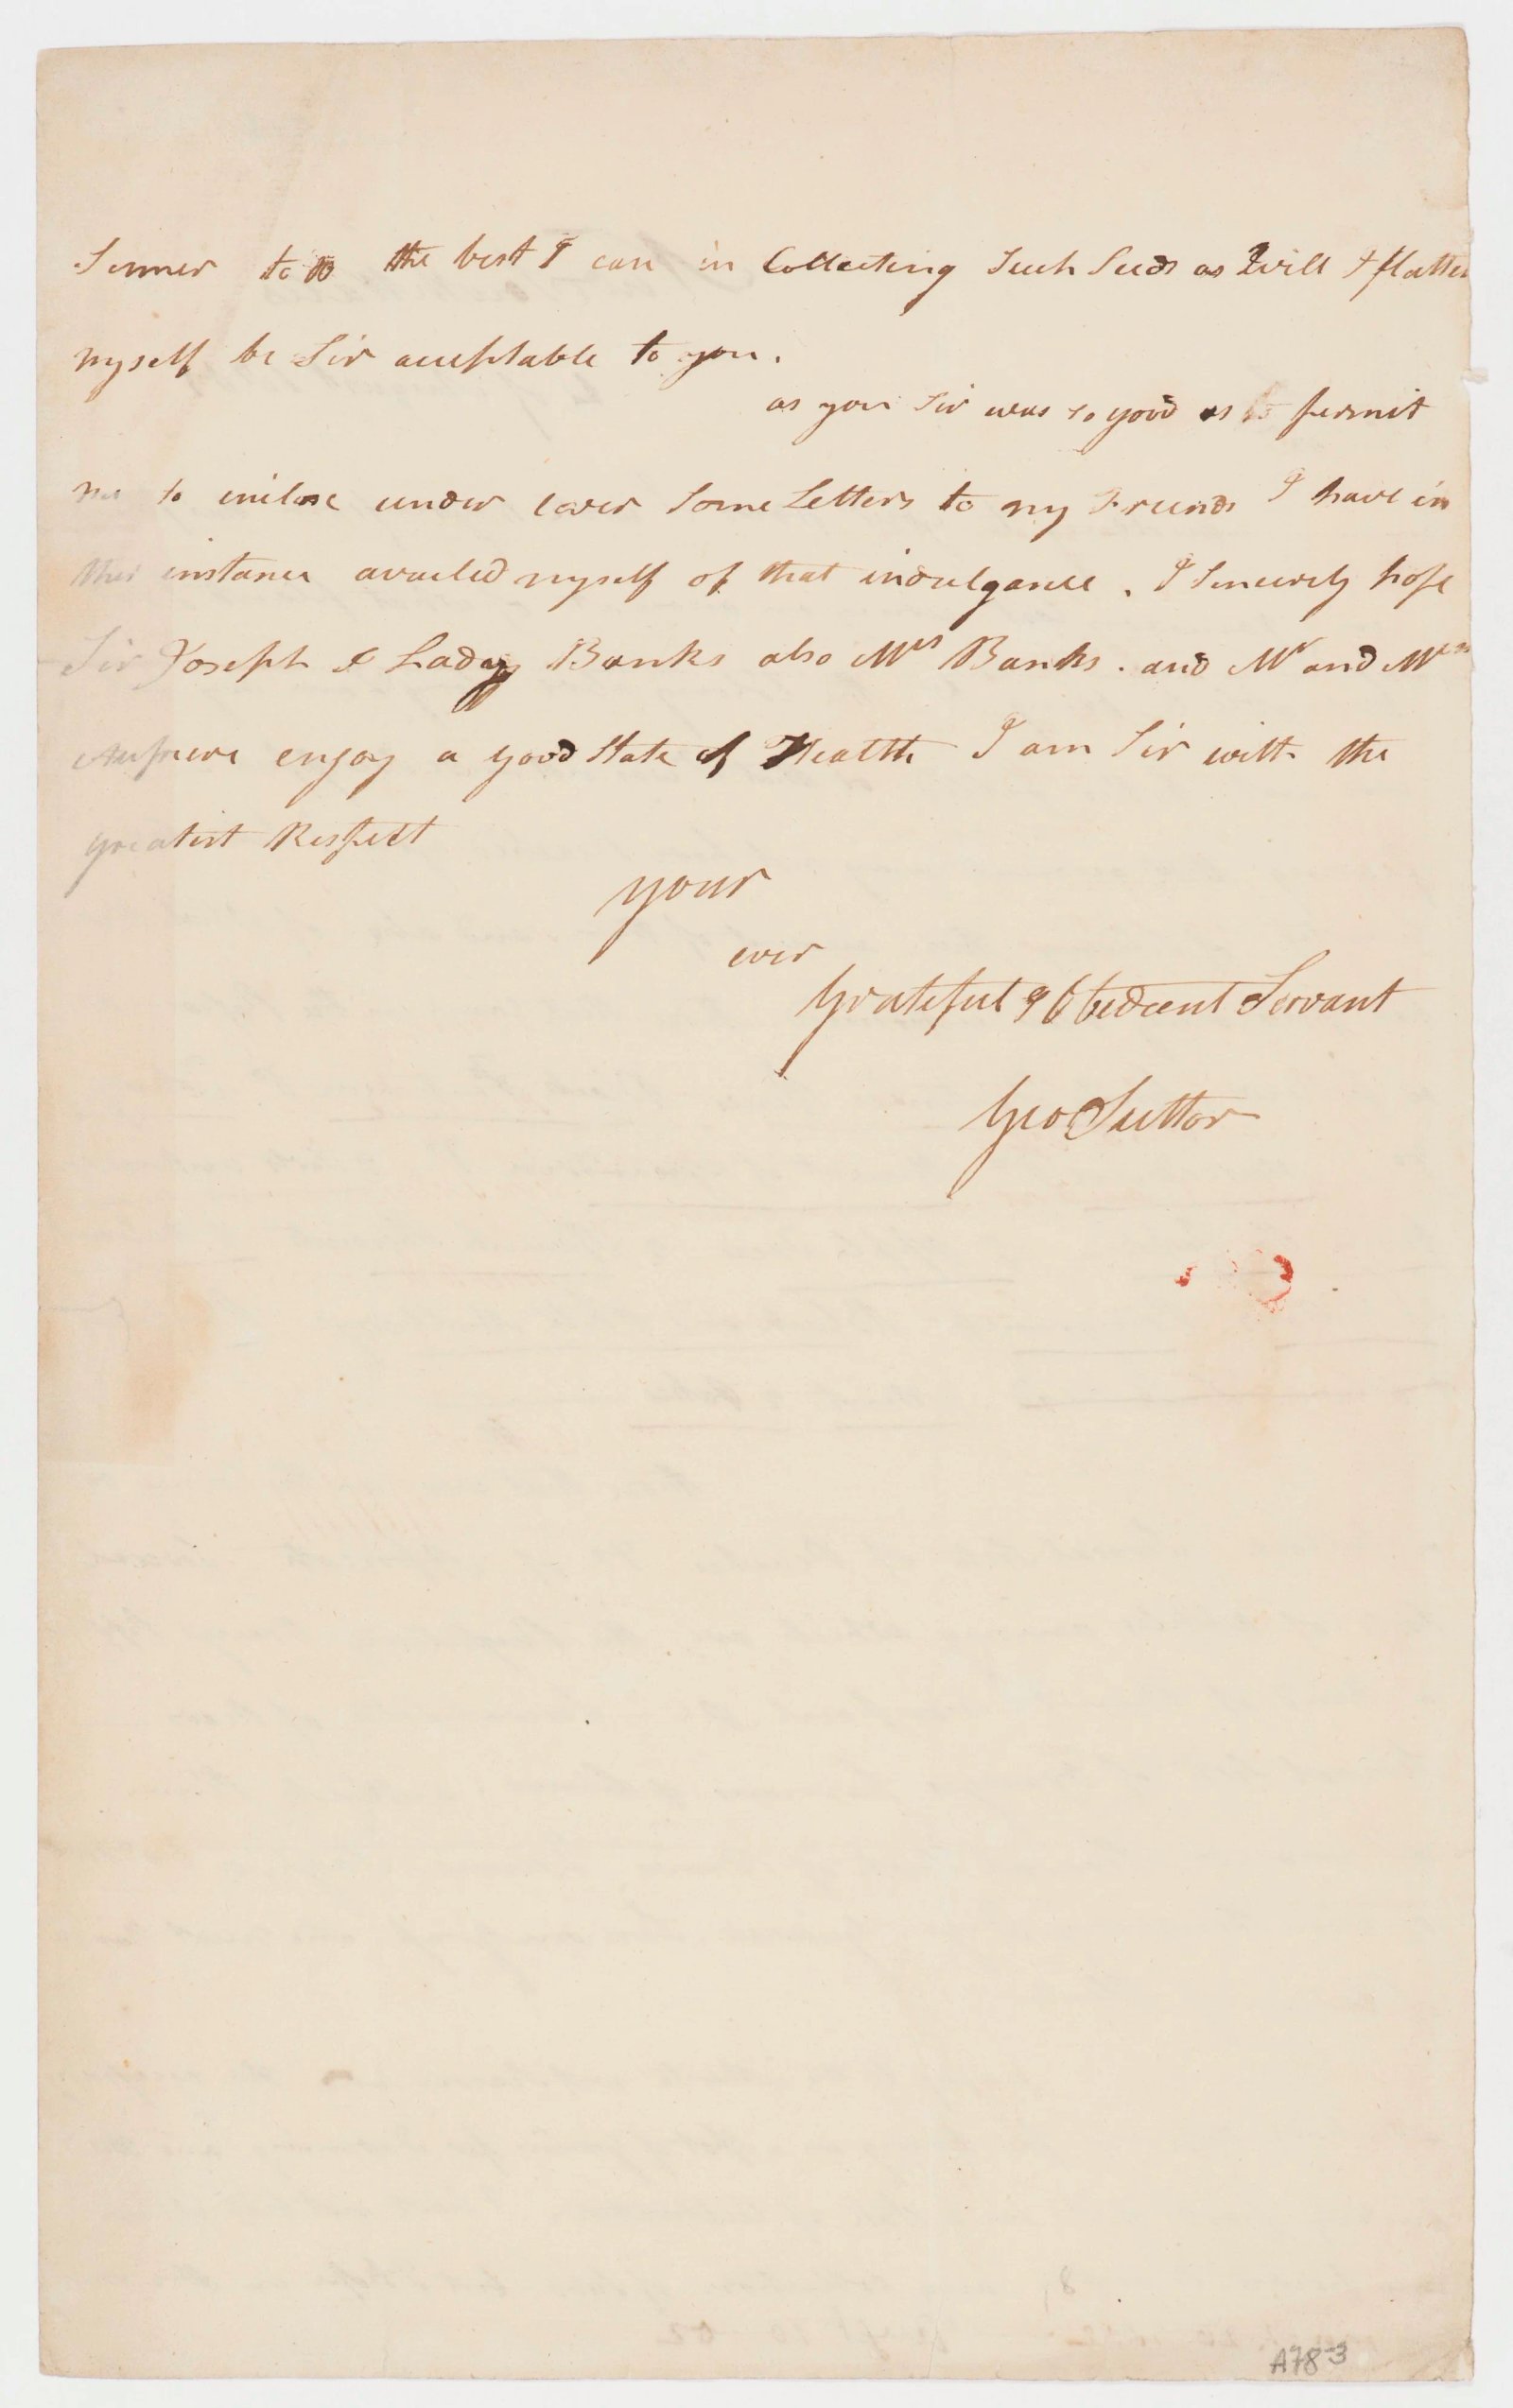 Sumer to do the best I can in Collecting Such Seeds as will I flatter
myself be Sir acceptable to you.
as you Sir was so good as to permit
me to inclose under cover Some Letters to my Friends I have in
this instance availed myself of that indulgance. I Sincerely hope
Sir Joseph & Lady Banks also Mrs Banks. and Mr and Mrs
enjoy a good State of Health I am Sir with the
greatest Respect
your
ever
Grateful & Obedient Servant
Geo Suttor
8
A78-3